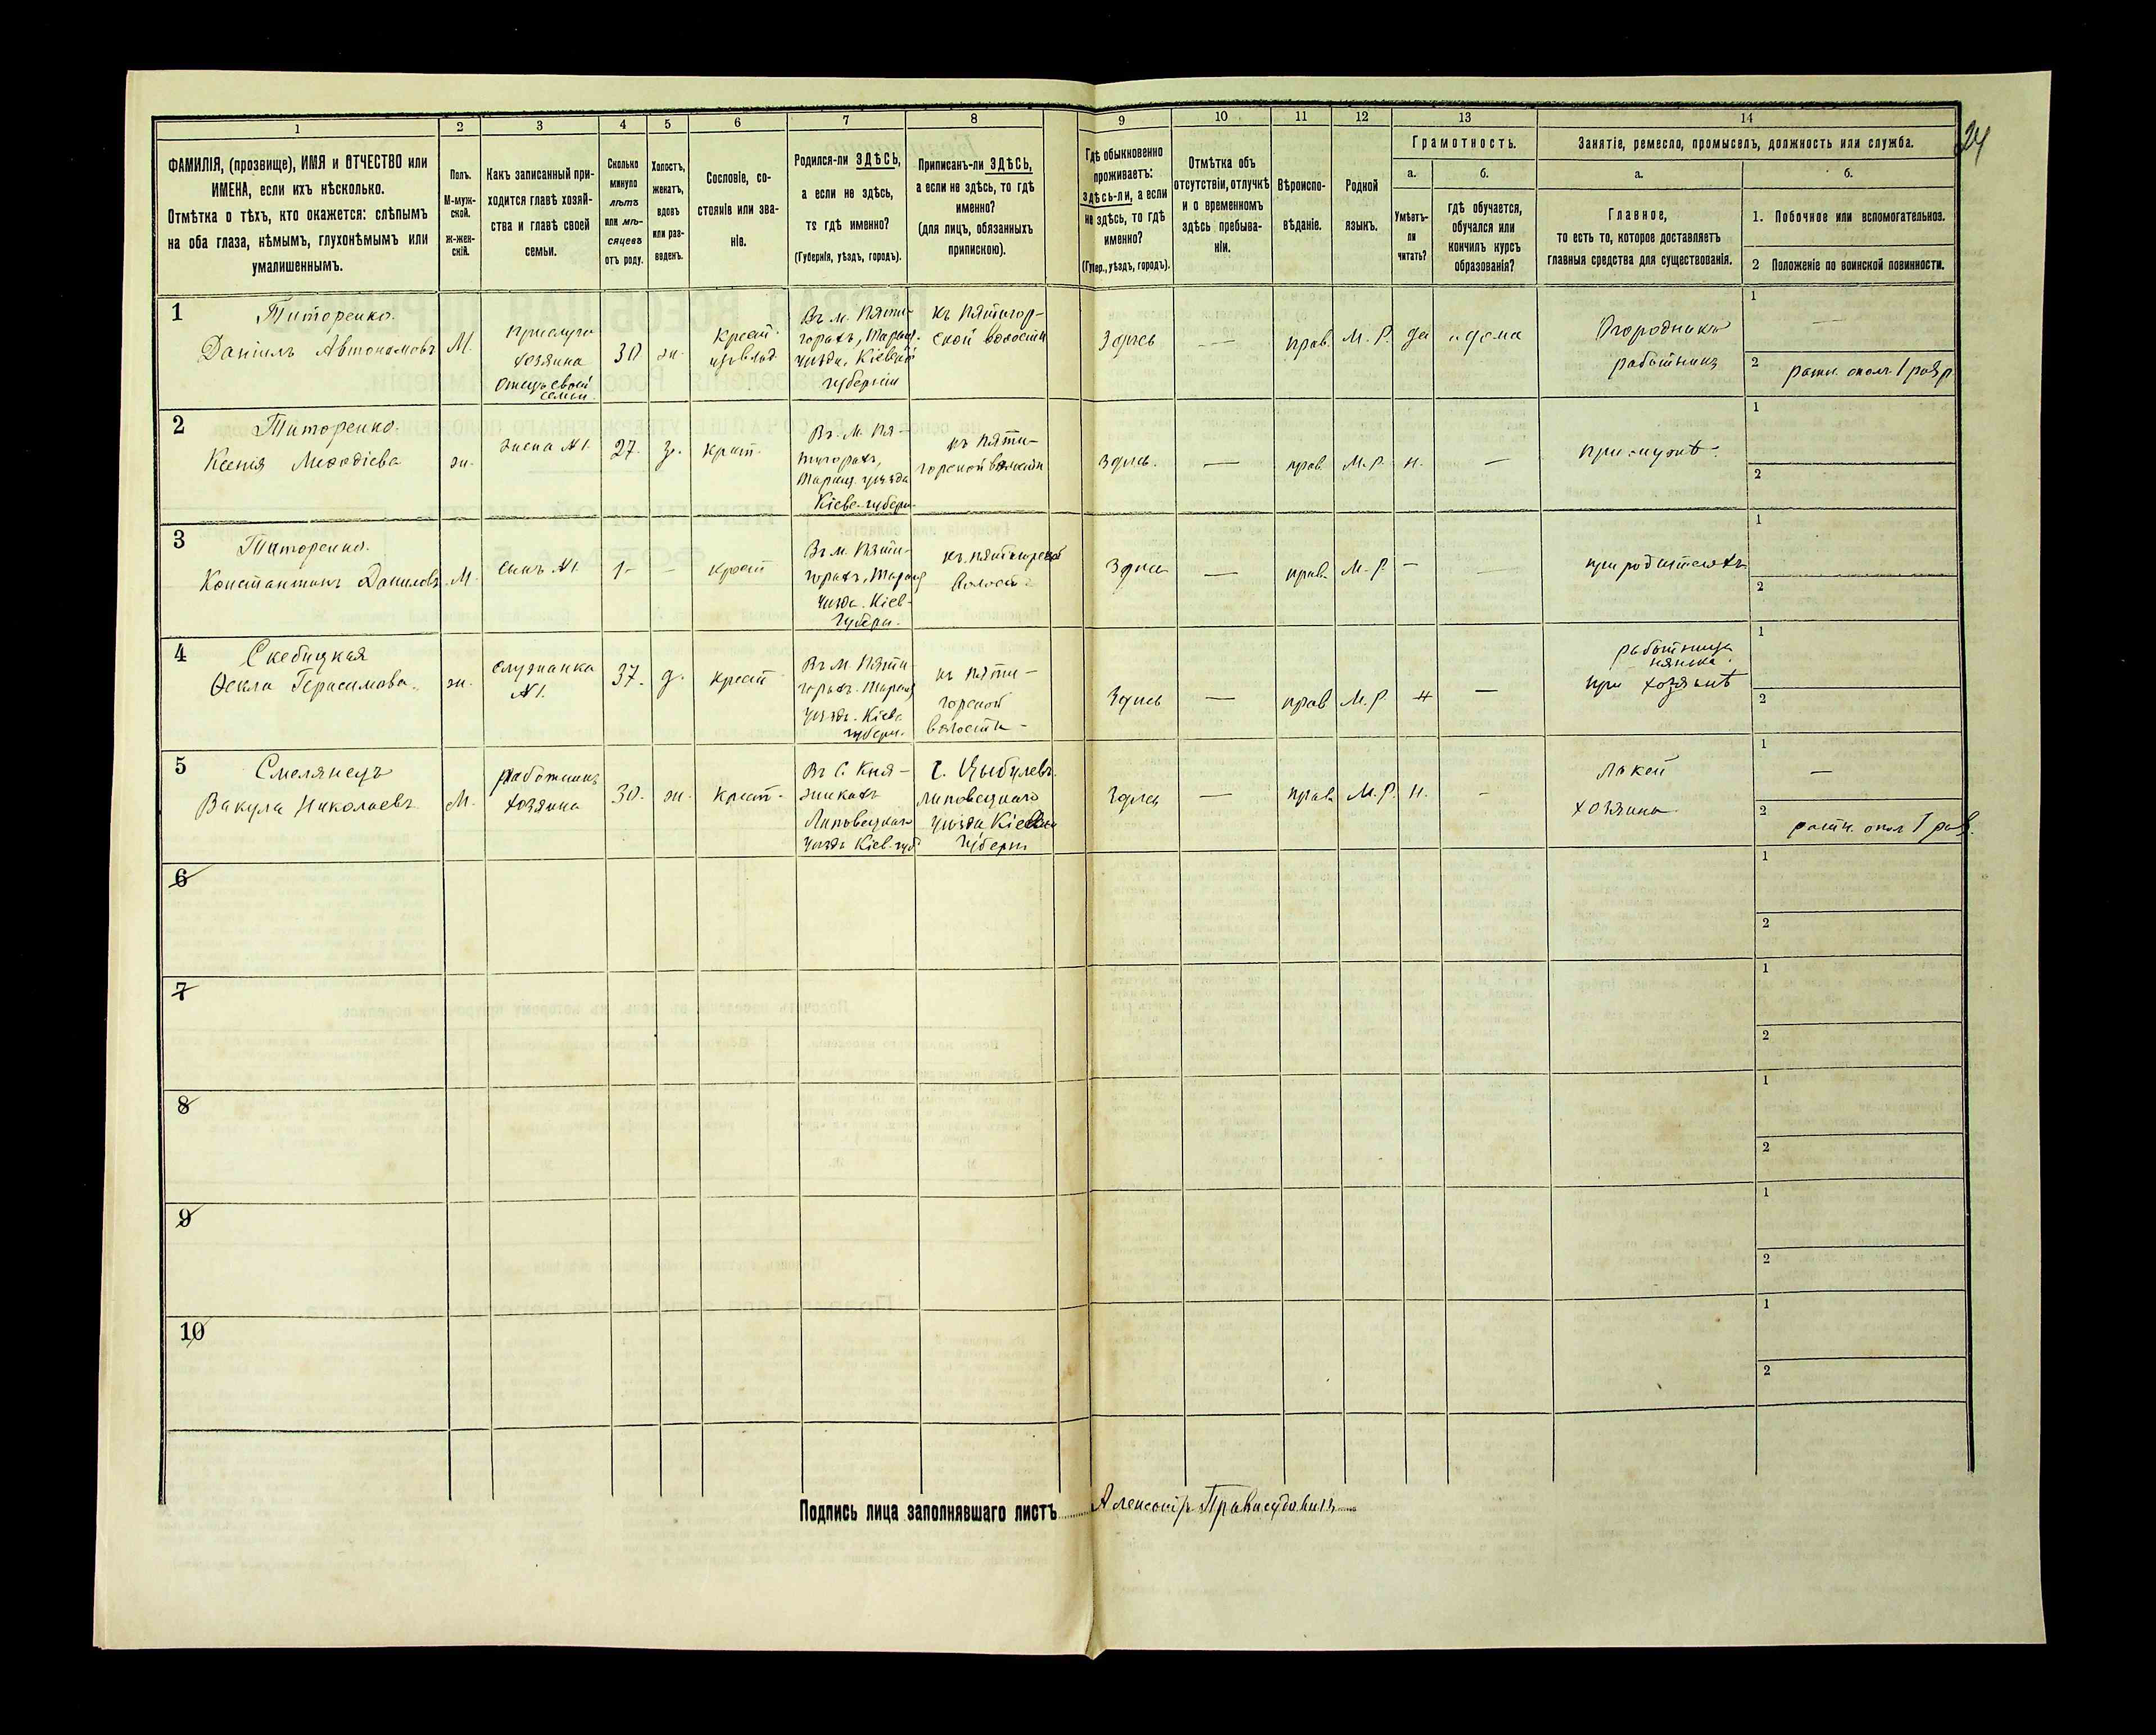 24
1 2 3 4 5 6 7 8 9 10 11 12 13 14
ФАМИЛІЯ, (прозвище), ИМЯ и ѲТЧЕСТВО или
ИМЕНА, если ихъ нѣсколько.
Отмѣтка о тѣхъ, кто окажется: слѣпымъ
на оба глаза, нѣмымъ, глухонѣмымъ или
умалишеннымъ.
Полъ.
М-муж-
ской.
ж-жен-
скій.
Какъ записанный при-
ходится главѣ хозяй-
ства и главѣ своей
семьи.
Сколько
минуло
лѣтъ
или мѣ-
сяцевъ
отъ роду.
Холостъ,
женатъ,
вдовъ
или раз-
веденъ.
Сословіе, со-
стояніе или зва-
ніе.
Родился-ли ЗДѢСЬ,
а если не здѣсь,
то гдѣ именно?
(Губернія, уѣздъ, городъ).
Приписанъ-ли ЗДѢСЬ,
а если не здѣсь, то гдѣ
именно?
(для лицъ, обязанныхъ
припискою).
Гдѣ обыкновенно
проживаетъ:
здѣсь-ли, а если
не здѣсь, то гдѣ
именно?
(Губер., уѣздъ, городъ).
Отмѣтка объ
отсутствіи, отлучкѣ
и о временномъ
здѣсь пребыва-
ніи.
Вѣроиспо-
вѣданіе.
Родной
языкъ.
Грамотность.
а.
Умѣетъ-
ли
читать?
б.
гдѣ обучается,
обучался или
кончилъ курсъ
образованія?
Занятіе, ремесло, промыселъ, должность или служба.
а.
Главное,
то есть то, которое доставляетъ
главныя средства для существованія.
б.
1. Побочное или вспомогательное.
2 Положеніе по воинской повинности.
1
Титоренко.
Даніилъ Автономовъ
М.
прислуга
хозяина
отецъ своей
семьи
30
ж.
крест.
изъ влад.
Въ м. Пяти-
горахъ, Таращ.
уѣзда, Кіевской
губерніи
къ Пятигор-
ской волости
Здѣсь
—
прав.
М. Р.
да
дома
Огородникъ
работникъ
1 —
2 ратн. опол. 1 разр
2
Титоренко.
Ксенія Меѳодіева
ж.
жена №1.
27.
з.
крест.
Въ. м. Пя-
тигорахъ,
Таращ. уѣзда
Кіевс. губерн.
къ Пяти-
горской волости
здѣсь.
—
прав
М. Р.
н.
—
при мужѣ.
1
2
3
Титоренко.
Константинъ Даниловъ
М.
сынъ №1
1-
-
крест
Въ м. Пяти-
горахъ, Таращ
уѣзда. Кіев-
губерн.
къ Пятигорской
волост.
Здѣсь
—
прав.
М. Р.
—
—
при родителяхъ
1
2
4
Скебицкая
Ѳекла Герасимова.
ж.
служанка
№1.
37.
д.
крест
Въ м. Пяти-
горахъ. Таращ
уѣзда. Кіевс
губерн.
къ Пяти-
горской
волости-
Здѣсь
—
прав
М. Р
н
—
работница
нянька.
при хозяинѣ
1
2
5
Смелянецъ
Вакула Николаевъ
М.
работникъ
хозяина
30.
ж.
крест.
Въ С. Кня-
жикахъ
Липовецкаго
уѣзда Кіев. губ
с. Цыбулевъ.
Липовецкаго
уѣзда Кіевской
губерн
Здѣсь
—
прав.
М. Р.
н.
-
лакей
хозяина
1 —
2 ратн. опол 1 раз.
6
1
2
7
1
2
8
1
2
9
1
2
10
1
2
Подпись лица заполнявшаго листъ